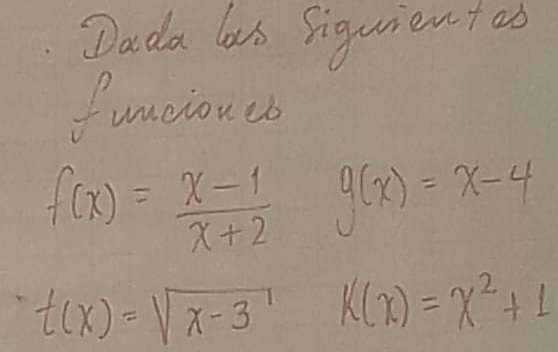 . Dada las Siguientes
funciones
f(x) = \frac{x-1}{x+2} g(x) = x-4
t(x) = \sqrt{x-3} K(x) = x^2+1